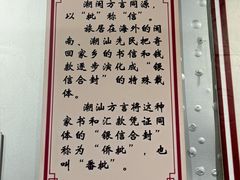 潮闽方言同源，
以“批”称“信”。
旅居在海外的闽
南、潮汕先民把寄
回家乡的书信和钱
款逐步演化成“银
信合封”的特殊载
体。
潮汕方言将这种
家书和汇款凭证同
体的“银信合封”
称为“侨批”，也
叫“番批”。